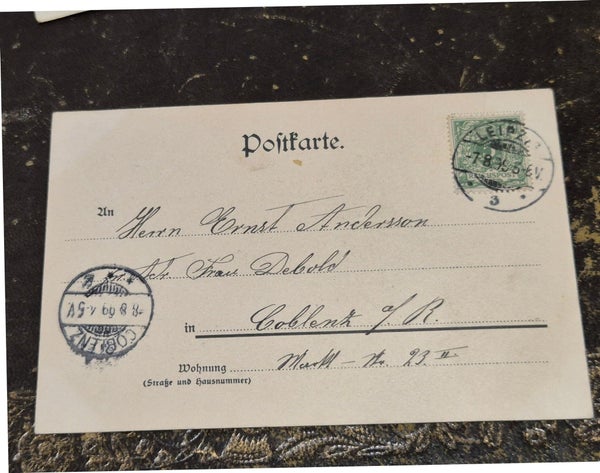 Postkarte.
LEIPZIG
-7.8.99.5-6V.
REICHSPOST
3
An
Herrn Ernst Andersson
Frau Debold
in Coblenz a/R.
Wohnung Markt-No. 23 II
(Straße und Hausnummer)
8.8.99.4-5V
COBLENZ